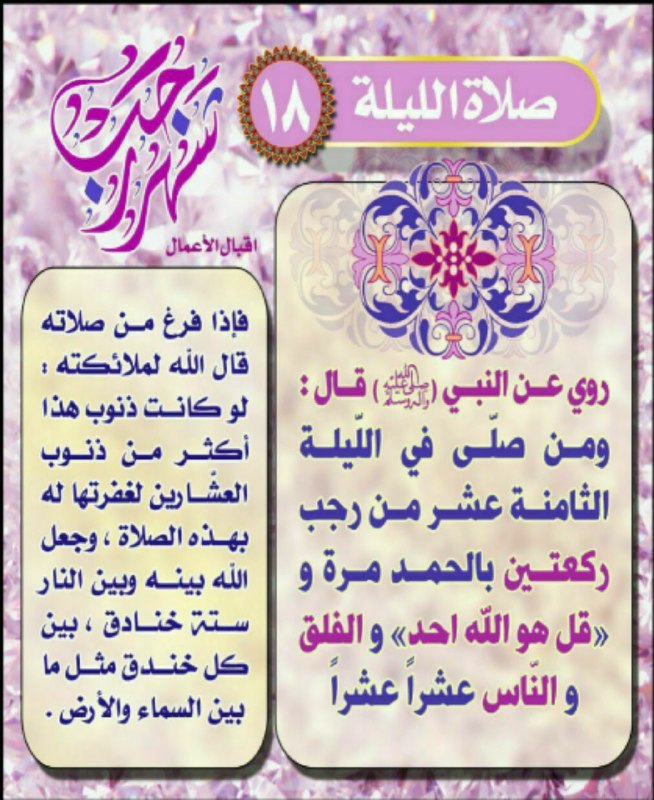 صلاة الليلة
١٨
شهر رجب
اقبال الأعمال
روي عن النبي (صلى الله عليه وآله وسلم) قال :
ومن صلّى في اللّيلة
الثامنة عشر من رجب
ركعتين بالحمد مرة و
«قل هو الله احد» و الفلق
و النّاس عشراً عشراً
فإذا فرغ من صلاته
قال الله لملائكته :
لو كانت ذنوب هذا
أكثر من ذنوب
العشّارين لغفرتها له
بهذه الصلاة ، وجعل
الله بينه وبين النار
ستة خنادق ، بين
كل خندق مثل ما
بين السماء والأرض .